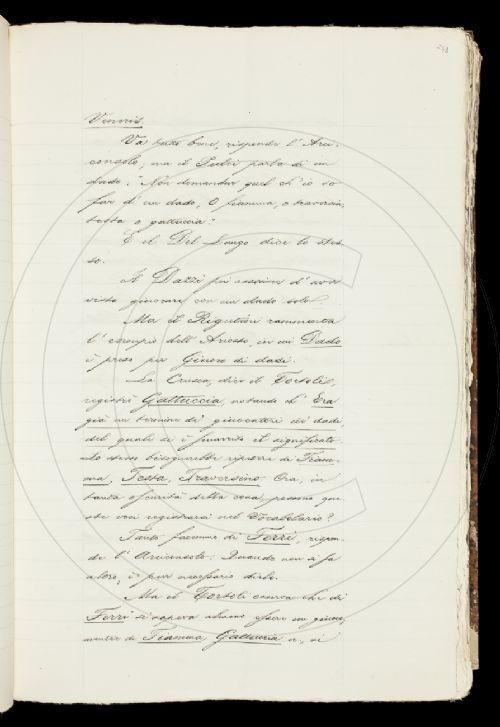 241
Vennis.
Va tutto bene, risponde l' Arci-
consolo, ma il Pulci parla di un
dado: "Non domandar quel ch' io so
far di un dado, O fiamma, o traversin,
testa o gattuccia."
E il Del Lungo dice lo stes-
so.
Il Dazzi fui assicura d' aver
visto giuocare con un dado solo.
Ma il Rigutini rammenta
l' esempio dell' Ariosto, in cui Dado
è preso per Giuoco di dadi.
La Crusca, dice il Tortoli,
registrò Gattuccia, notando ch' Era
già un termine di giuocatori di dadi,
del quale si è smarrito il significato.
Lo stesso bisognerebbe ripetere di Fiam-
ma, Testa, Traversino. Ora, in
tanta oscurità della cosa, possono que-
ste voci registrarsi nel Vocabolario?
Tanto facemmo di Ferri, rispon-
de l' Arciconsolo: Quando non si fa
altro, è pur necessario dirlo.
Ma il Tortoli osserva che di
Ferri si sapeva almeno essere un giuoco,
mentre di Fiamma, Gattuccia ec, si